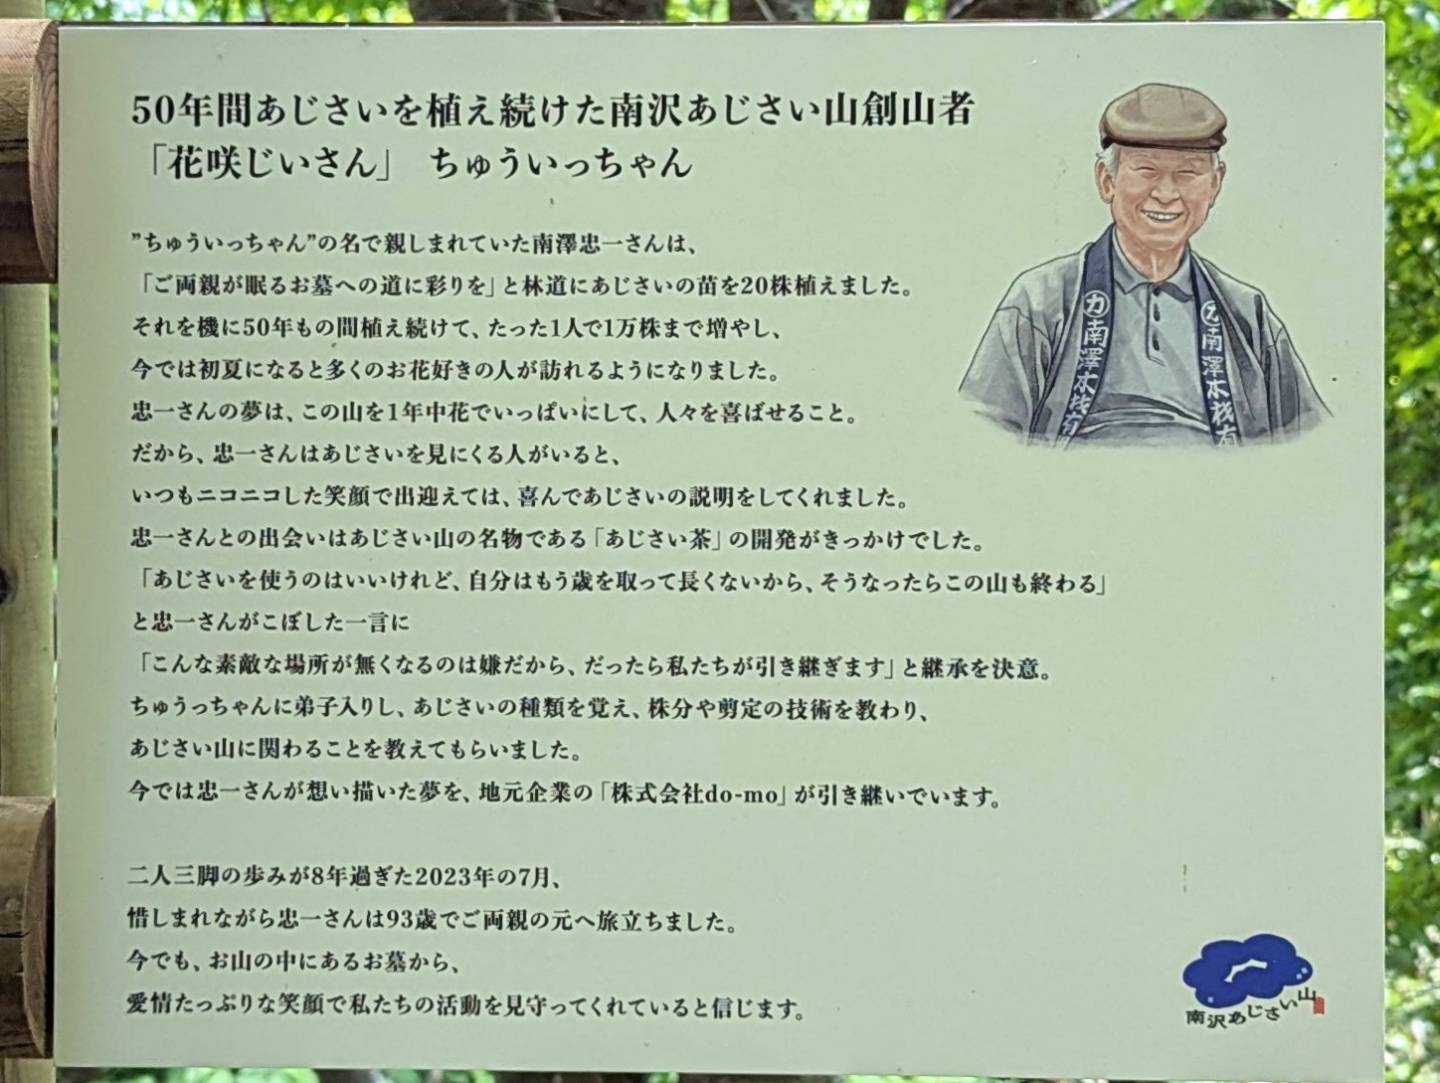 50年間あじさいを植え続けた南沢あじさい山創山者
「花咲じいさん」　ちゅういっちゃん
”ちゅういっちゃん”の名で親しまれていた南澤忠一さんは、
「ご両親が眠るお墓への道に彩りを」と林道にあじさいの苗を20株植えました。
それを機に50年もの間植え続けて、たった1人で1万株まで増やし、
今では初夏になると多くのお花好きの人が訪れるようになりました。
忠一さんの夢は、この山を1年中花でいっぱいにして、人々を喜ばせること。
だから、忠一さんはあじさいを見にくる人がいると、
いつもニコニコした笑顔で出迎えては、喜んであじさいの説明をしてくれました。
忠一さんとの出会いはあじさい山の名物である「あじさい茶」の開発がきっかけでした。
「あじさいを使うのはいいけれど、自分はもう歳を取って長くないから、そうなったらこの山も終わる」
と忠一さんがこぼした一言に
「こんな素敵な場所が無くなるのは嫌だから、だったら私たちが引き継ぎます」と継承を決意。
ちゅうっちゃんに弟子入りし、あじさいの種類を覚え、株分や剪定の技術を教わり、
あじさい山に関わることを教えてもらいました。
今では忠一さんが想い描いた夢を、地元企業の「株式会社do-mo」が引き継いでいます。
二人三脚の歩みが8年過ぎた2023年の7月、
惜しまれながら忠一さんは93歳でご両親の元へ旅立ちました。
今でも、お山の中にあるお墓から、
愛情たっぷりな笑顔で私たちの活動を見守ってくれていると信じます。
南澤木材有
南澤木材有
南沢あじさい山